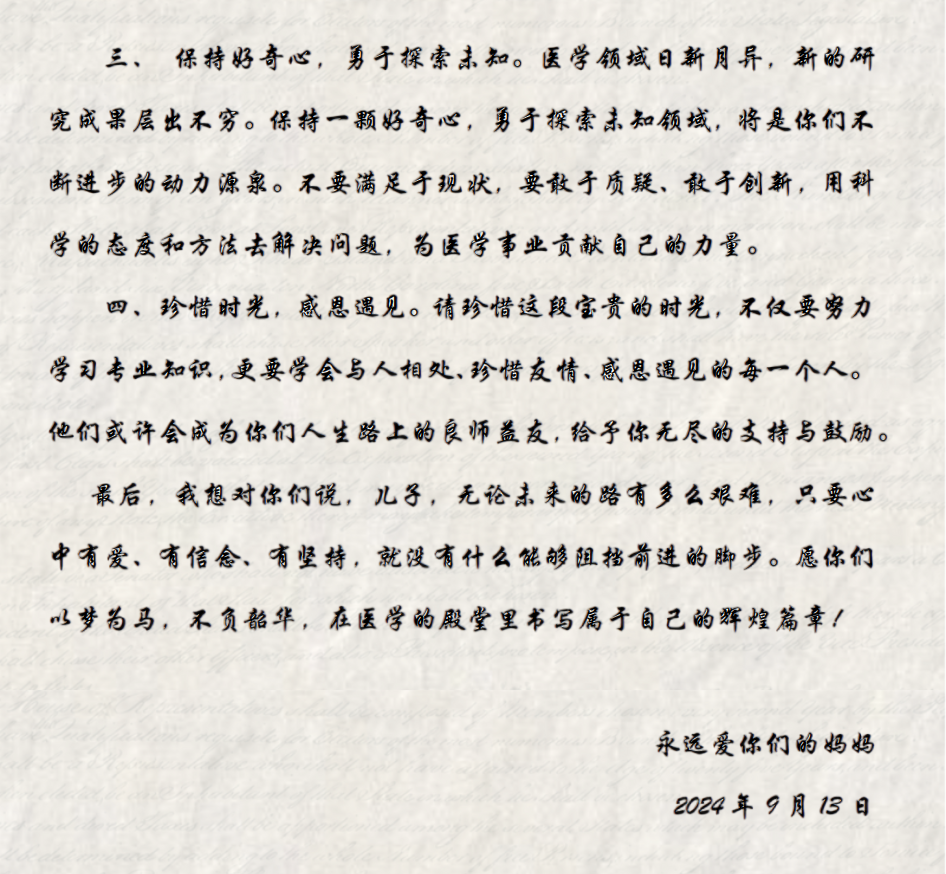 三、 保持好奇心，勇于探索未知。医学领域日新月异，新的研
究成果层出不穷。保持一颗好奇心，勇于探索未知领域，将是你们不
断进步的动力源泉。不要满足于现状，要敢于质疑、敢于创新，用科
学的态度和方法去解决问题，为医学事业贡献自己的力量。
四、珍惜时光，感恩遇见。请珍惜这段宝贵的时光，不仅要努力
学习专业知识，更要学会与人相处、珍惜友情、感恩遇见的每一个人。
他们或许会成为你们人生路上的良师益友，给予你无尽的支持与鼓励。
最后，我想对你们说，儿子，无论未来的路有多么艰难，只要心
中有爱、有信念、有坚持，就没有什么能够阻挡前进的脚步。愿你们
以梦为马，不负韶华，在医学的殿堂里书写属于自己的辉煌篇章！
永远爱你们的妈妈
2024年9月13日